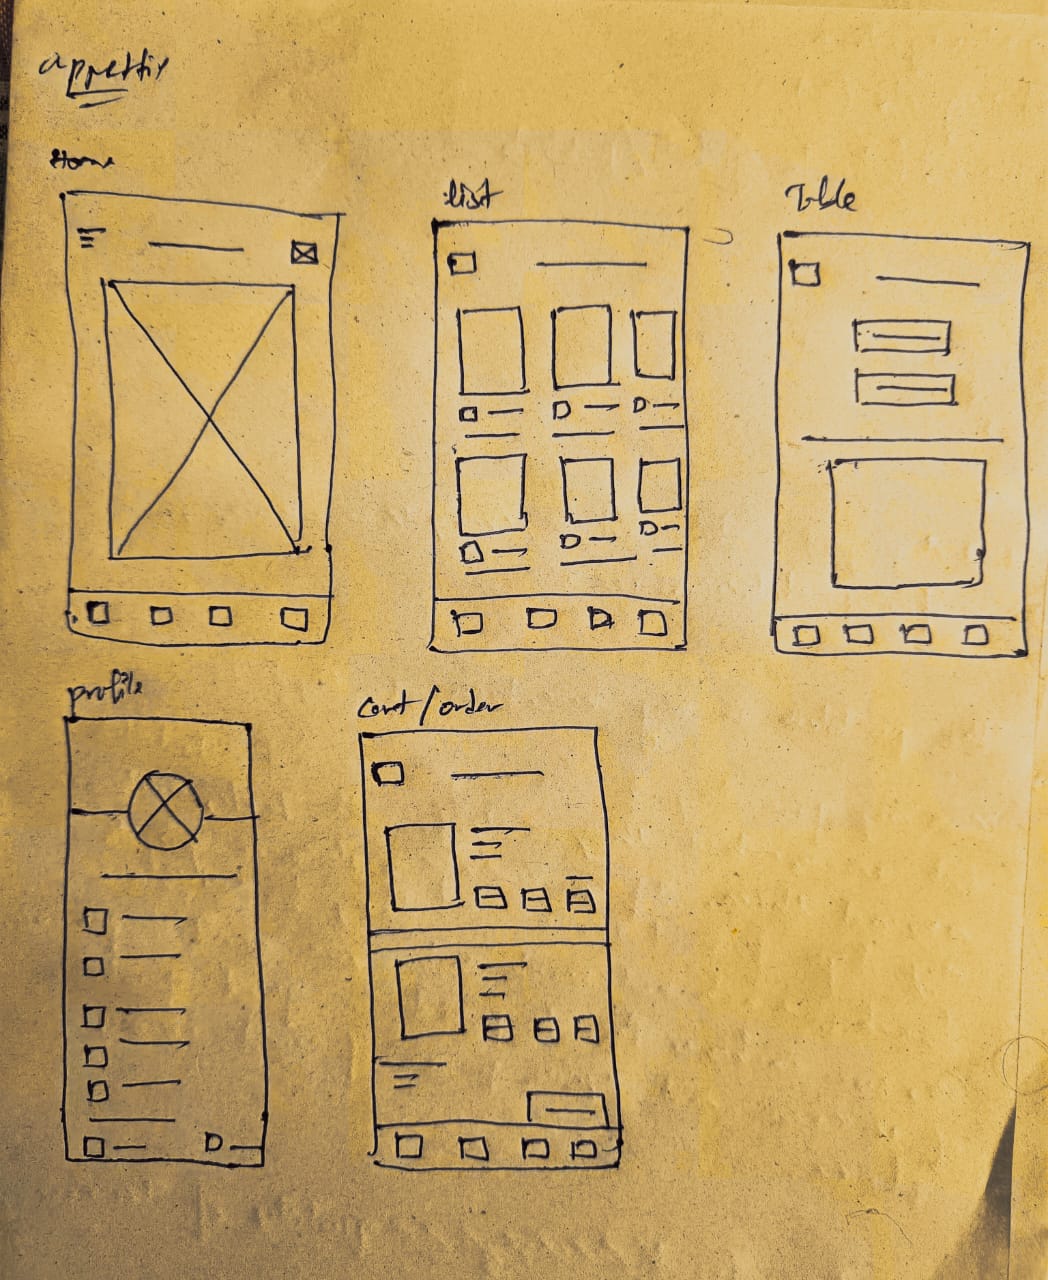 appettix
Home
list
Table
profile
cart/order